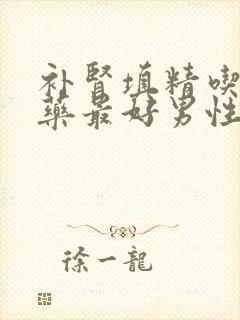 补肾填精喫
药最好男性
徐一龍